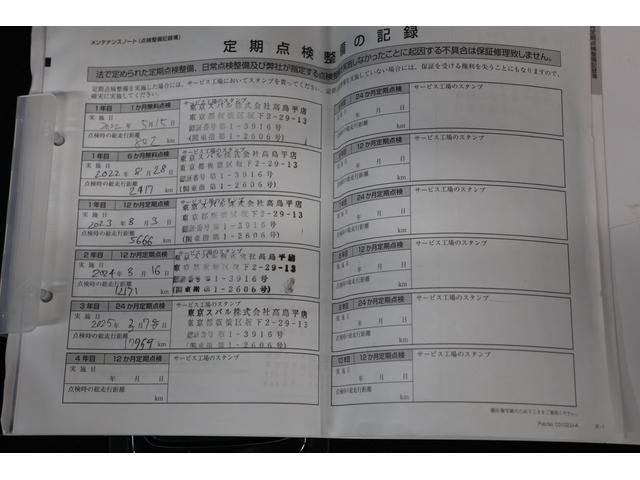 メンテナンスノート（点検整備記録簿）
定期点検整備の記録
法で定められた定期点検整備、日常点検整備及び弊社が指定する点検整備を実施しなかったことに起因する不具合は保証修理致しません。
定期点検整備を実施した場合には、サービス工場においてスタンプを貰ってください。
確実に実施してください。
を実施していない場合には、保証を受ける権利を失うことにもなりますので、
1年目 1か月無料点検 サービス工場のスタンプ
実施日
2022年 5月15日
点検時の総走行距離
802 km
東京スバル株式会社高島平店
東京都板橋区坂下2-29-13
認証番号第1-3916号
(関東指第1-2606号)
1年目 6か月無料点検 サービス工場のスタンプ
実施日
2022年 8月28日
点検時の総走行距離
2417 km
東京スバル株式会社高島平店
東京都板橋区坂下2-29-13
認証番号第1-3915号
(関東指第1-2606号)
1年目 12か月定期点検 サービス工場のスタンプ
実施日
2023年 8月 3日
点検時の総走行距離
5666 km
東京スバル株式会社高島平店
東京都板橋区坂下2-29-13
認証番号第1-3915号
(関東指第1-2606号)
2年目 12か月定期点検 サービス工場のスタンプ
実施日
2024年 3月16日
点検時の総走行距離
km
東京スバル株式会社高島平店
東京都板橋区坂下2-29-13
認証番号第1-3915号
(関東指第1-2606号)
3年目 24か月定期点検 サービス工場のスタンプ
実施日
2025年 3月 7日
点検時の総走行距離
km
東京スバル株式会社高島平店
東京都板橋区坂下2-29-13
認証番号第1-3915号
(関東指第1-2606号)
4年目 12か月定期点検 サービス工場のスタンプ
実施日
年 月 日
点検時の総走行距離
km
24か月定期点検 サービス工場のスタンプ
年 月 日
点検時の総走行距離
km
12か月定期点検 サービス工場のスタンプ
年 月 日
点検時の総走行距離
km
24か月定期点検 サービス工場のスタンプ
年 月 日
点検時の総走行距離
km
12か月定期点検 サービス工場のスタンプ
年 月 日
点検時の総走行距離
km
24か月定期点検 サービス工場のスタンプ
年 月 日
点検時の総走行距離
km
10年目 12か月定期点検 サービス工場のスタンプ
実施日
年 月 日
点検時の総走行距離
km